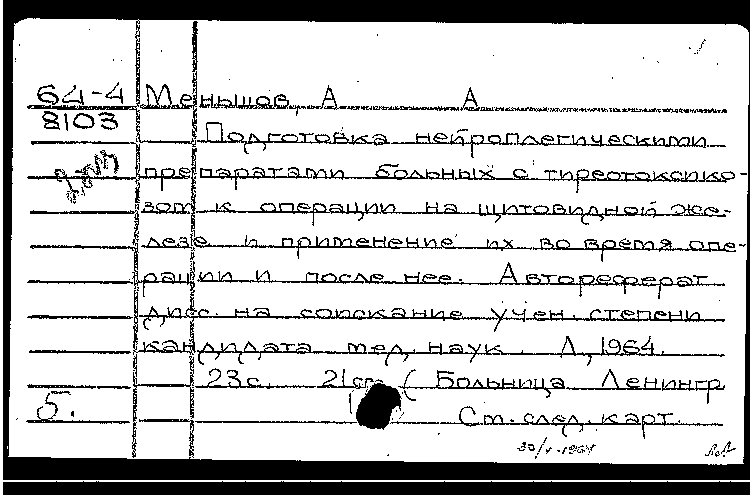 64-4 Меньшов, А А
8103
Подготовка нейроплегическими
препаратами больных с тиреотоксико-
зом к операции на щитовидной же-
лезе и применение их во время опе-
рации и после нее. Автореферат
дисс. на соискание учен. степени
кандидата мед. наук. Л, 1964.
23с. 21см (Больница Ленингр
5. Ст. след. карт.
30/V-1964